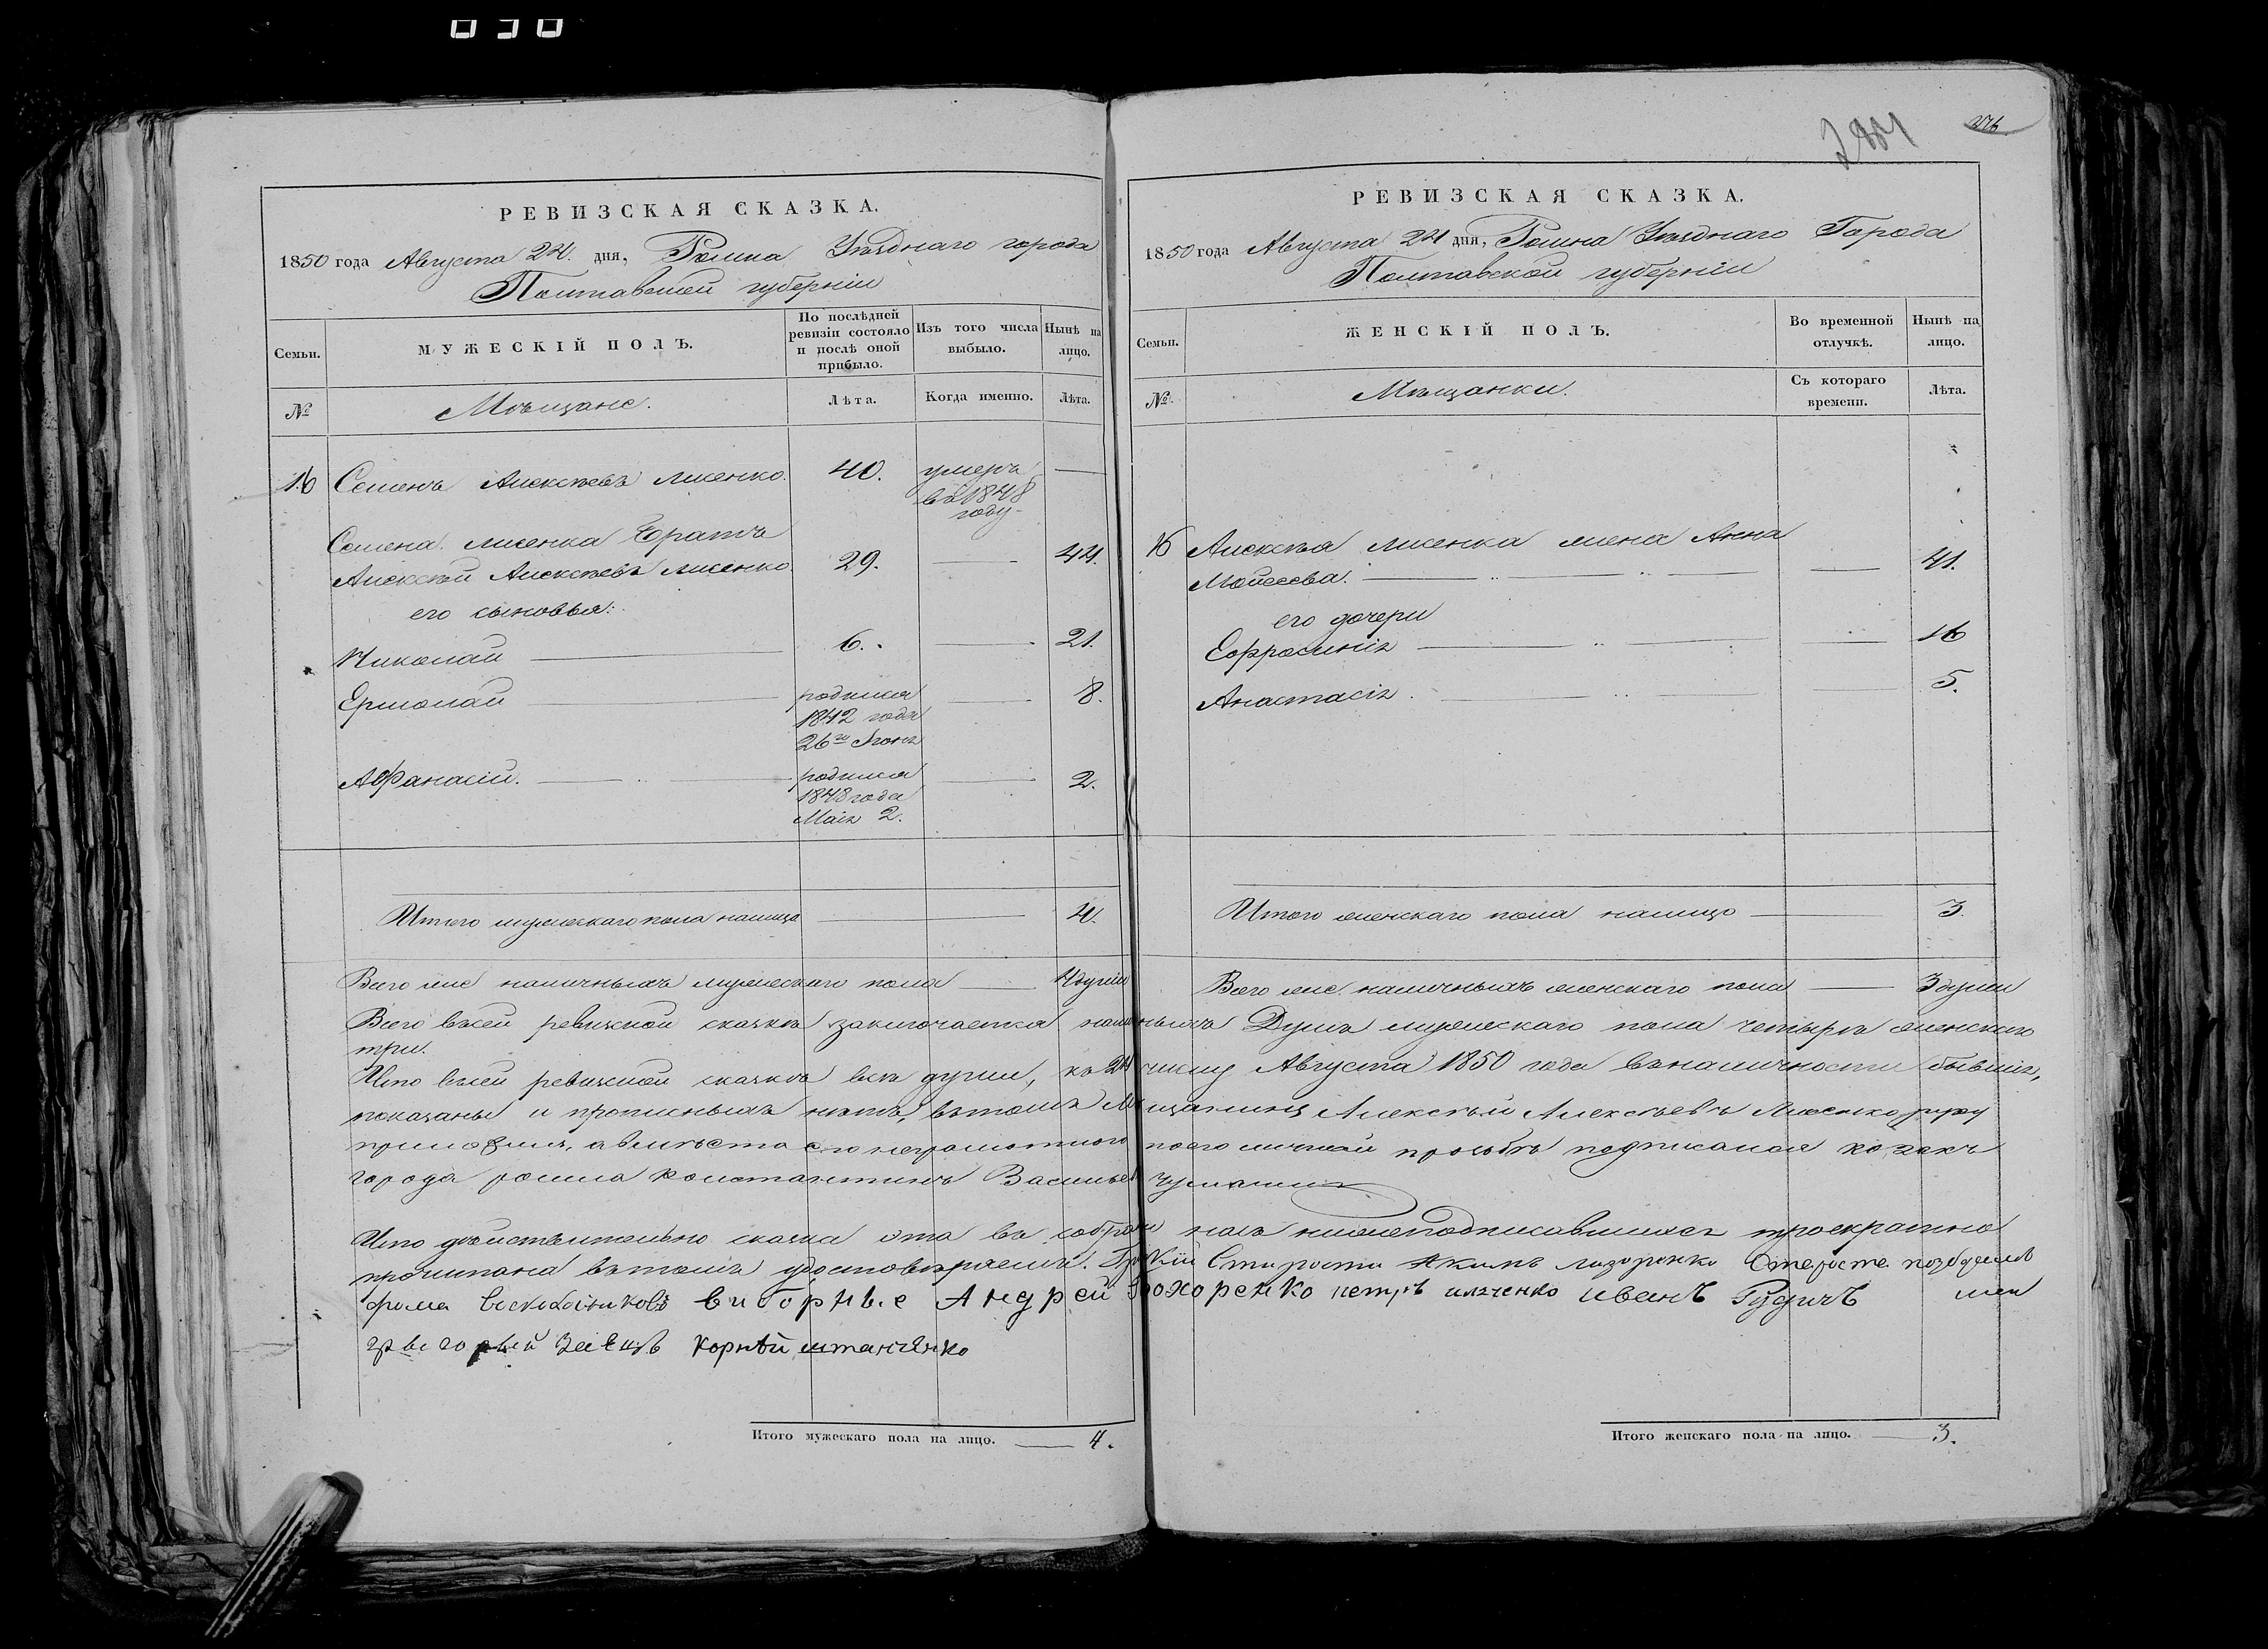 284 276
РЕВИЗСКАЯ СКАЗКА.
1850 года Августа 24. дня, Ромна Уѣзднаго города
Полтавской губерніи
Семьи.
МУЖЕСКІЙ ПОЛЪ.
По послѣдней ревизіи состояло и послѣ оной прибыло.
Изъ того числа выбыло.
Нынѣ на лицо.
№
Мѣщане.
Лѣта.
Когда именно.
Лѣта.
16 Семенъ Алексѣевъ Лисенко. 40. умеръ —
въ 1848
году
Семена Лисенка братъ
Алексѣй Алексѣевъ Лисенко 29. — 44.
его сыновья:
Николай — 6. — 21.
Ермолай — родился — 8.
1842 года
26го Іюня
Афанасій. — родился — 2.
1848 года
Маія 2.
Итого мужескаго пола налицо — 4.
Всего же наличныхъ мужескаго пола — 4 души
РЕВИЗСКАЯ СКАЗКА.
1850 года Августа 24 дня, Ромна Уѣзднаго Города
Полтавской губерніи
Семьи.
ЖЕНСКІЙ ПОЛЪ.
Во временной отлучкѣ.
Нынѣ на лицо.
№
Мѣщанки.
Съ котораго времени.
Лѣта.
16 Алексѣя Лисенка жена Анна
Мойсеева. — — 41.
его дочери
Ефросинія — — 16
Анастасія. — — 5.
Итого женскаго пола налицо — 3.
Всего же наличныхъ женскаго пола — 3 души
Всего въ сей ревизской сказкѣ заключается наличныхъ Душъ мужескаго пола четыри женскаго
три.
Что въ сей ревизской сказкѣ всѣ души, къ 24 числу Августа 1850 года въ наличности бывшія,
показаны и прописныхъ нѣтъ, въ томъ Мѣщанинъ Алексѣй Алексѣевъ Лисенко руку
приложилъ, а вмѣсто его неграмотного по его личной прозбѣ подписался козакъ
города ромна Константинъ Васильевъ
Что дѣйствительно сказка эта въ собраніи насъ нижеподписавшихся троекратно
прочитана въ томъ удостовѣряемъ. Старости Акимъ Староста
фома виборные Андрей Бохоренко петръ иванъ Рудичъ
заецъ корнѣй
Итого мужескаго пола на лицо. — 4.
Итого женскаго пола на лицо. — 3.